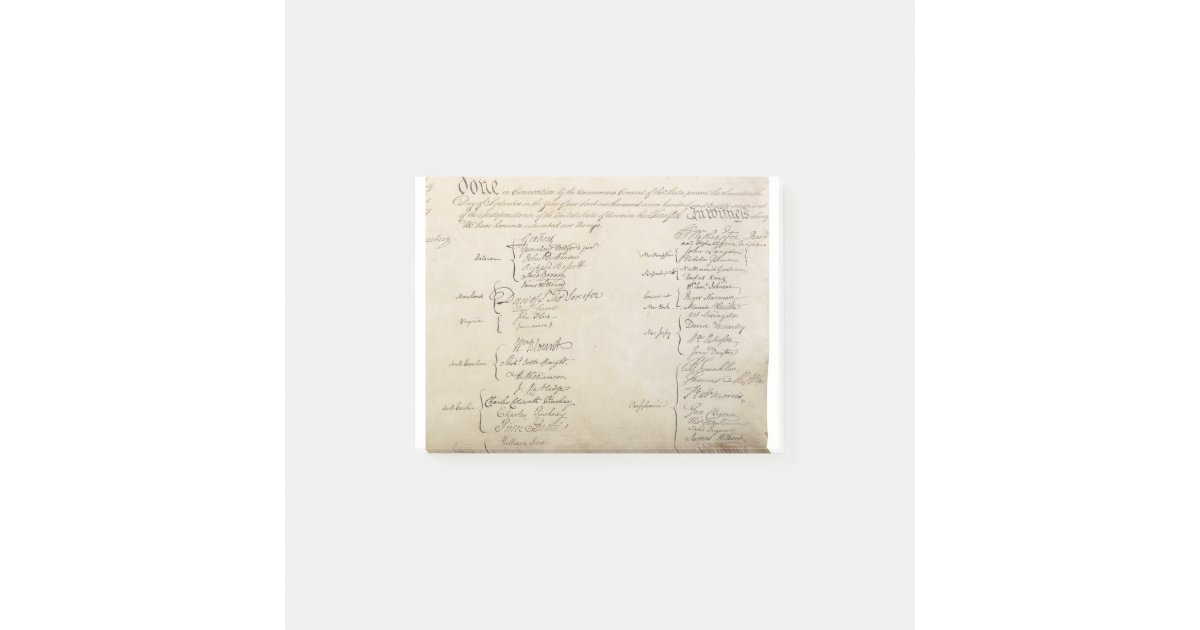 done in Convention by the Unanimous Consent of the States present the Seventeenth
Day of September in the Year of our Lord one thousand seven hundred and Eighty seven and
of the Independance of the United States of America the Twelfth In witness whereof
We have hereunto subscribed our Names,
Delaware
Geo: Read
Gunning Bedford jun
John Dickinson
Richard Bassett
Jaco: Broom
Maryland
James McHenry
Dan of St Tho Jenifer
Danl Carroll
Virginia
John Blair
North Carolina
Wm Blount
Richd Dobbs Spaight
Hu Williamson
South Carolina
J. Rutledge
Charles Cotesworth Pinckney
Charles Pinckney
Pierce Butler
William Few
Go Washington Presidt
and deputy from Virginia
New Hampshire
John Langdon
Nicholas Gilman
Massachusetts
Nathaniel Gorham
Rufus King
Connecticut
Wm Saml Johnson
Roger Sherman
New York
Wil: Livingston
New Jersey
David Brearley
Wm Paterson
Jona: Dayton
B Franklin
Thomas Mifflin
Robt Morris
Geo. Clymer
James Wilson